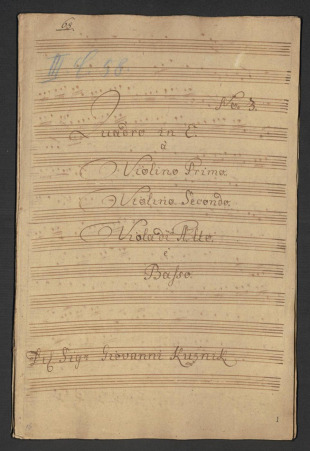 68.
III C. 58
No. 3.
Quadro in C.
à
Violino Primo.
Violino Secondo.
Viola di Alto.
è
Basso.
Del Sigr Giovanni Kuznik
1